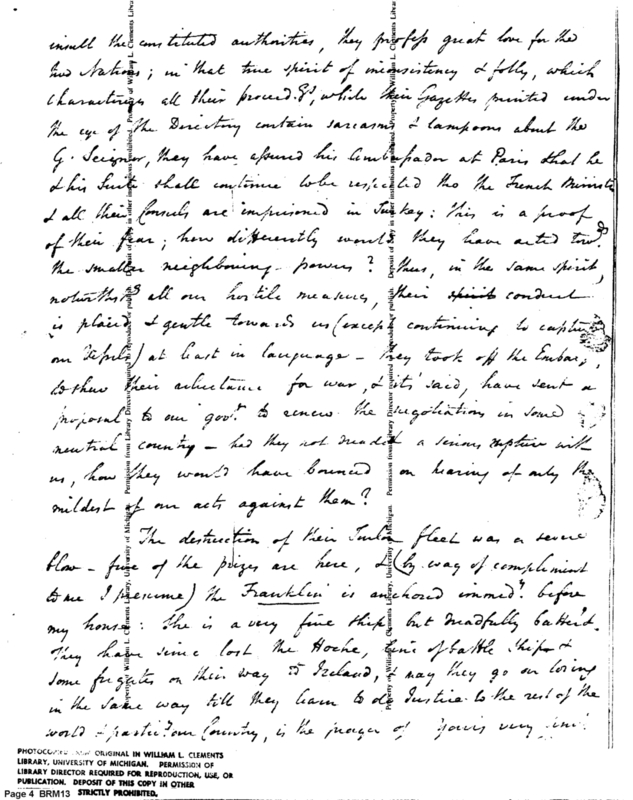 insult the constituted authorities, they profess great love for the
two Nations; in that true spirit of inconsistency & folly, which
characterizes all their proceedgs, while their Gazettes printed under
the eye of the Directory contain sarcasms & lampoons about the
G. Seignor, they have assured his Ambassador at Paris that he
& his Suite shall continue to be respected tho the French Minister
& all their Consuls are imprisoned in Turkey: This is a proof
of their fear; how differently would they have acted towds
the smaller neighbouring powers? thus, in the same spirit,
notwithstg all our hostile measures, their spirit conduct
is placid & gentle towards us (except continuing to capture
our Vessels) at least in language - They took off the Embargo,
to shew their reluctance for war, & its said, have sent a
proposal to our govt. to renew the negotiations in some
neutral country - had they not dreaded a serious rupture with
us, how they would have bounced on hearing of only the
mildest of our acts against them?
The destruction of their Toulon fleet was a severe
blow - five of the prizes are here, & (by way of complement
to me I presume) the Franklin is anchored immedy. before
my house: She is a very fine ship but dreadfully batter'd.
They have since lost the Hoche, line of battle ship &
some frigates on their way to Ireland, & may they go on losing
in the same way till they learn to do Justice to the rest of the
world & partic. our Country, is the prayer of yours very
PHOTOCOPIED FROM ORIGINAL IN WILLIAM L. CLEMENTS
LIBRARY, UNIVERSITY OF MICHIGAN. PERMISSION OF
LIBRARY DIRECTOR REQUIRED FOR REPRODUCTION, USE, OR
PUBLICATION. DEPOSIT OF THIS COPY IN OTHER
Page 4 BRM13 STRICTLY PROHIBITED.